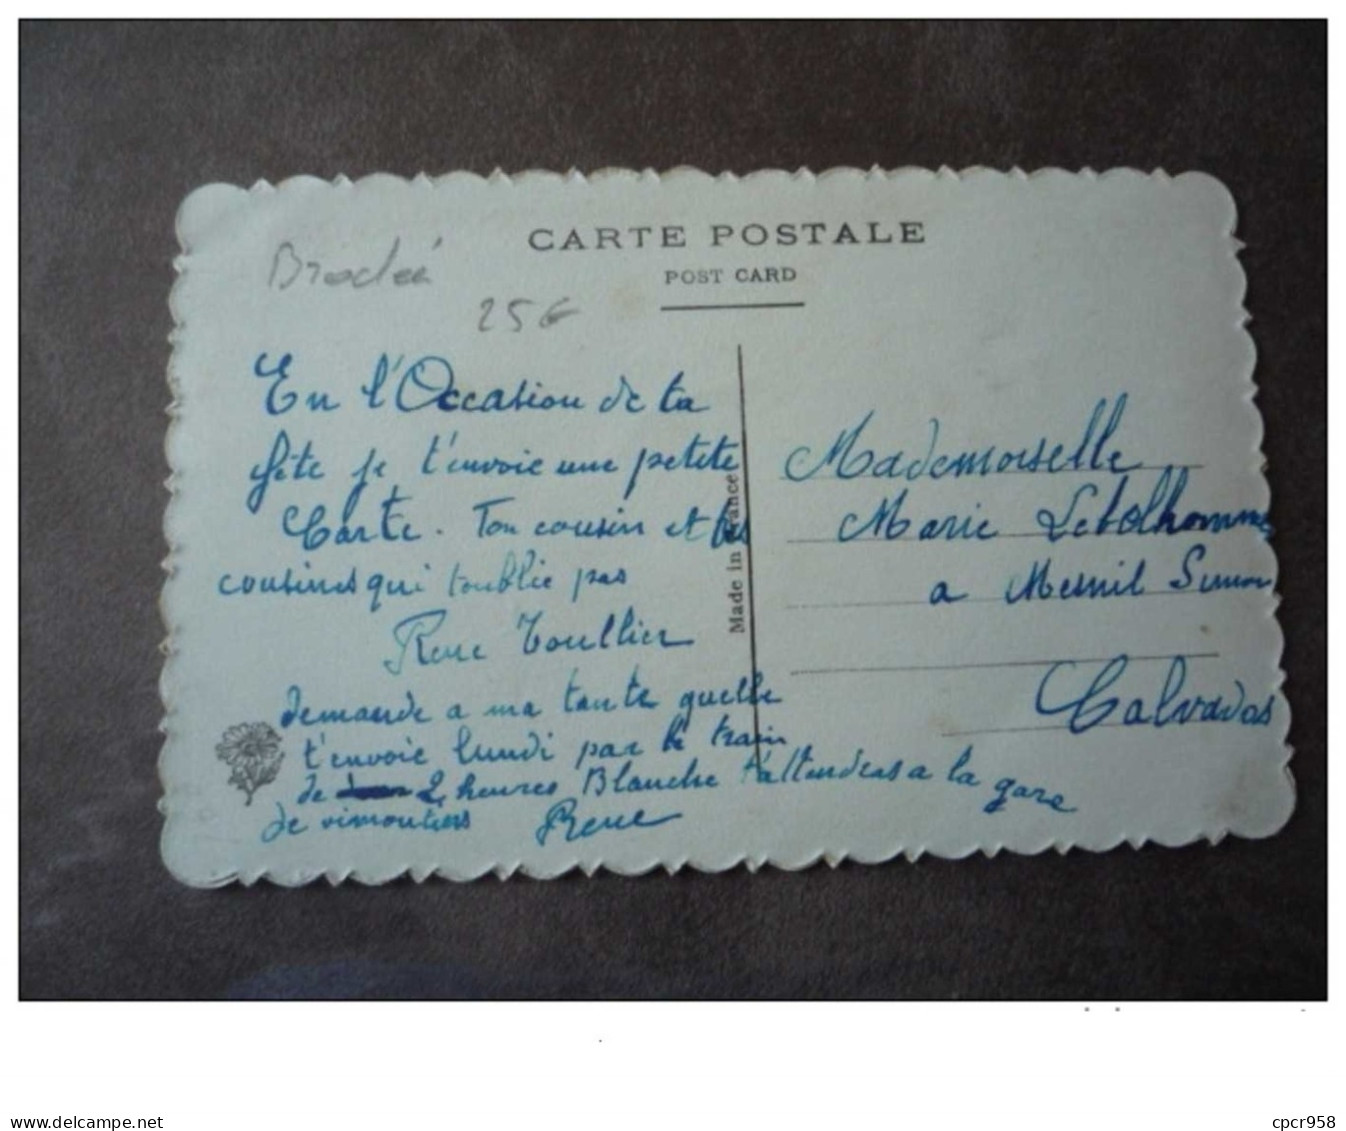 CARTE POSTALE
POST CARD
Brodée
25€
En l'Occasion de ta
fête je t'envoie une petite
Carte. Ton cousin et tes
cousines qui toublie pas
Rene Toullier
demande a ma tante quelle
t'envoie lundi par le train
de 2 heures Blanche t'attenderas a la gare
de vimoutiers Rene
Made in France
Mademoiselle
Marie Lebolhomme
a Mesnil Simon
Calvados
www.delcampe.net
cpcr958